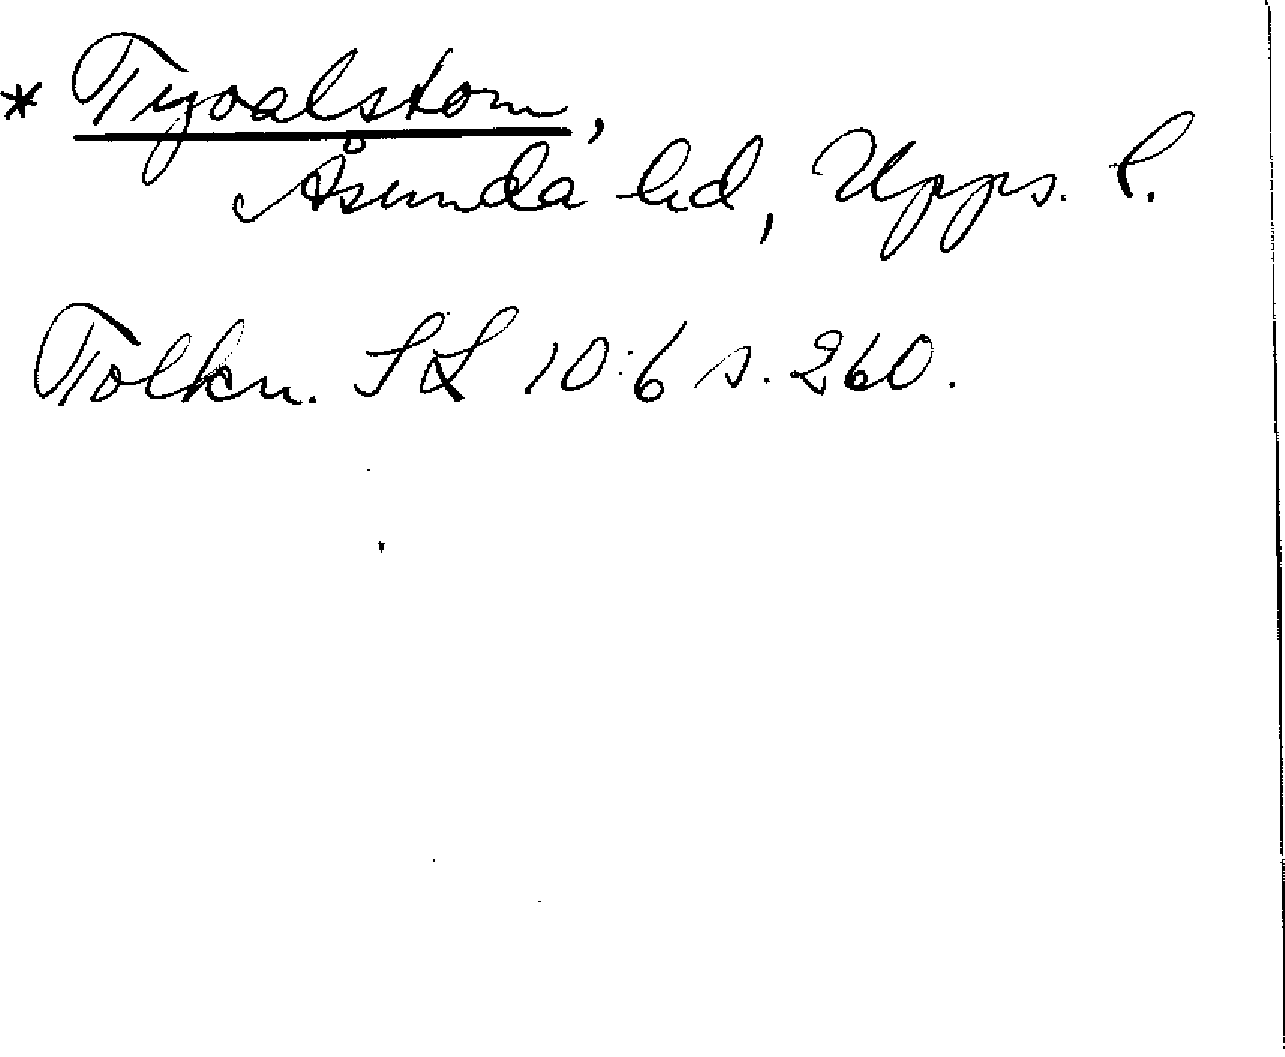 * Tyoalstom,
Åsunda hd, Upps. l.
Tolkn. SL 10:6 s. 260.